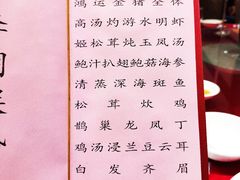 鸿运金猪全体
高汤灼游水明虾
姬松茸炖玉凤汤
鲍汁扒翅鲍菇海参
清蒸深海斑鱼
松茸炊鸡
鹊巢龙凤丁
鸡汤浸兰豆云耳
白发齐眉